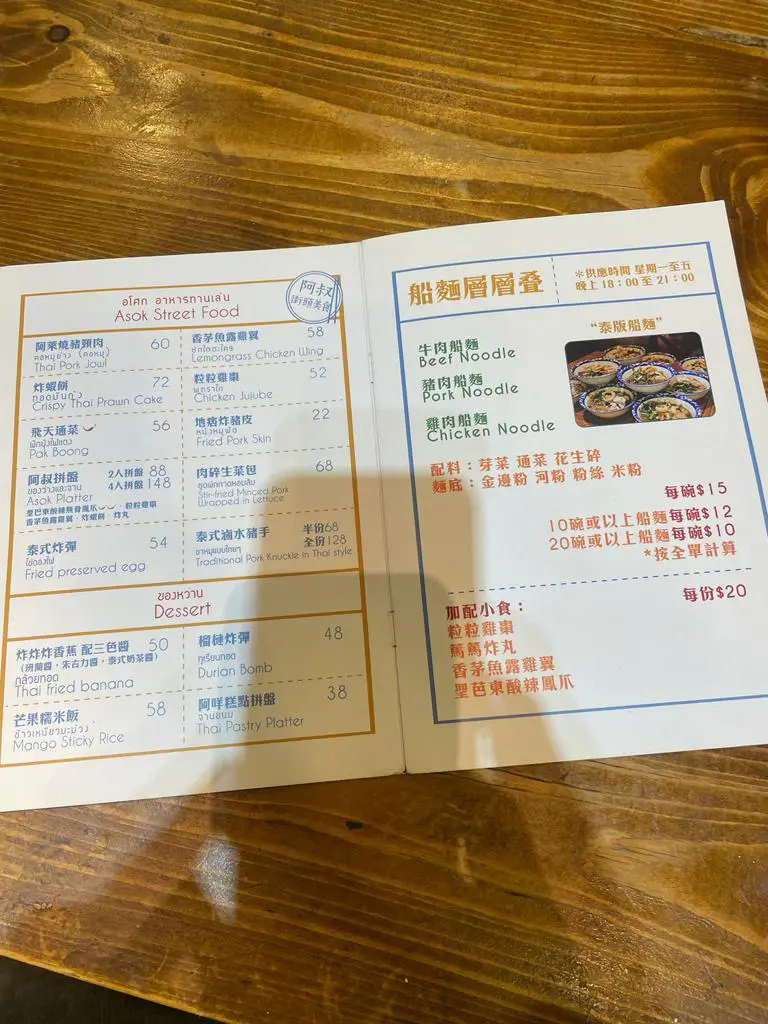 อโศก อาหารทานเล่น
Asok Street Food
阿叔
街頭美食
阿萊燒豬頸肉 60
คอหมูย่าง (คอหมู)
Thai Pork Jowl
香茅魚露雞翼 58
Lemongrass Chicken Wing
炸蝦餅 72
ทอดมันกุ้ง
Crispy Thai Prawn Cake
粒粒雞棗 52
พุทราไก่
Chicken Jujube
飛天通菜 56
ผักบุ้งไฟแดง
Pak Boong
地痞炸豬皮 22
หนังหมูทอด
Fried Pork Skin
阿叔拼盤 2人拼盤 88
ของว่างและจาน 4人拼盤 148
Asok Platter
聖巴東酸辣無骨鳳爪、粒粒雞棗
香茅魚露雞翼、炸蝦餅、炸丸
肉碎生菜包 68
Stir-fried Minced Pork
Wrapped in Lettuce
泰式炸彈 54
Fried preserved egg
泰式滷水豬手 半份68
ขาหมูแบบไทยๆ 全份128
Traditional Pork Knuckle in Thai style
ของหวาน
Dessert
炸炸炸香蕉 配三色醬 50
(班蘭醬，朱古力醬，泰式奶茶醬)
กล้วยทอด
Thai fried banana
榴槤炸彈 48
ทุเรียนทอด
Durian Bomb
芒果糯米飯 58
ข้าวเหนียวมะม่วง
Mango Sticky Rice
阿咩糕點拼盤 38
จานขนม
Thai Pastry Platter
船麵層層叠
*供應時間 星期一至五
晚上18：00 至 21：00
“泰版船麵”
牛肉船麵
Beef Noodle
豬肉船麵
Pork Noodle
雞肉船麵
Chicken Noodle
配料：芽菜 通菜 花生碎
麵底：金邊粉 河粉 粉絲 米粉
每碗$15
10碗或以上船麵每碗$12
20碗或以上船麵每碗$10
*按全單計算
加配小食： 每份$20
粒粒雞棗
篤篤炸丸
香茅魚露雞翼
聖芭東酸辣鳳爪